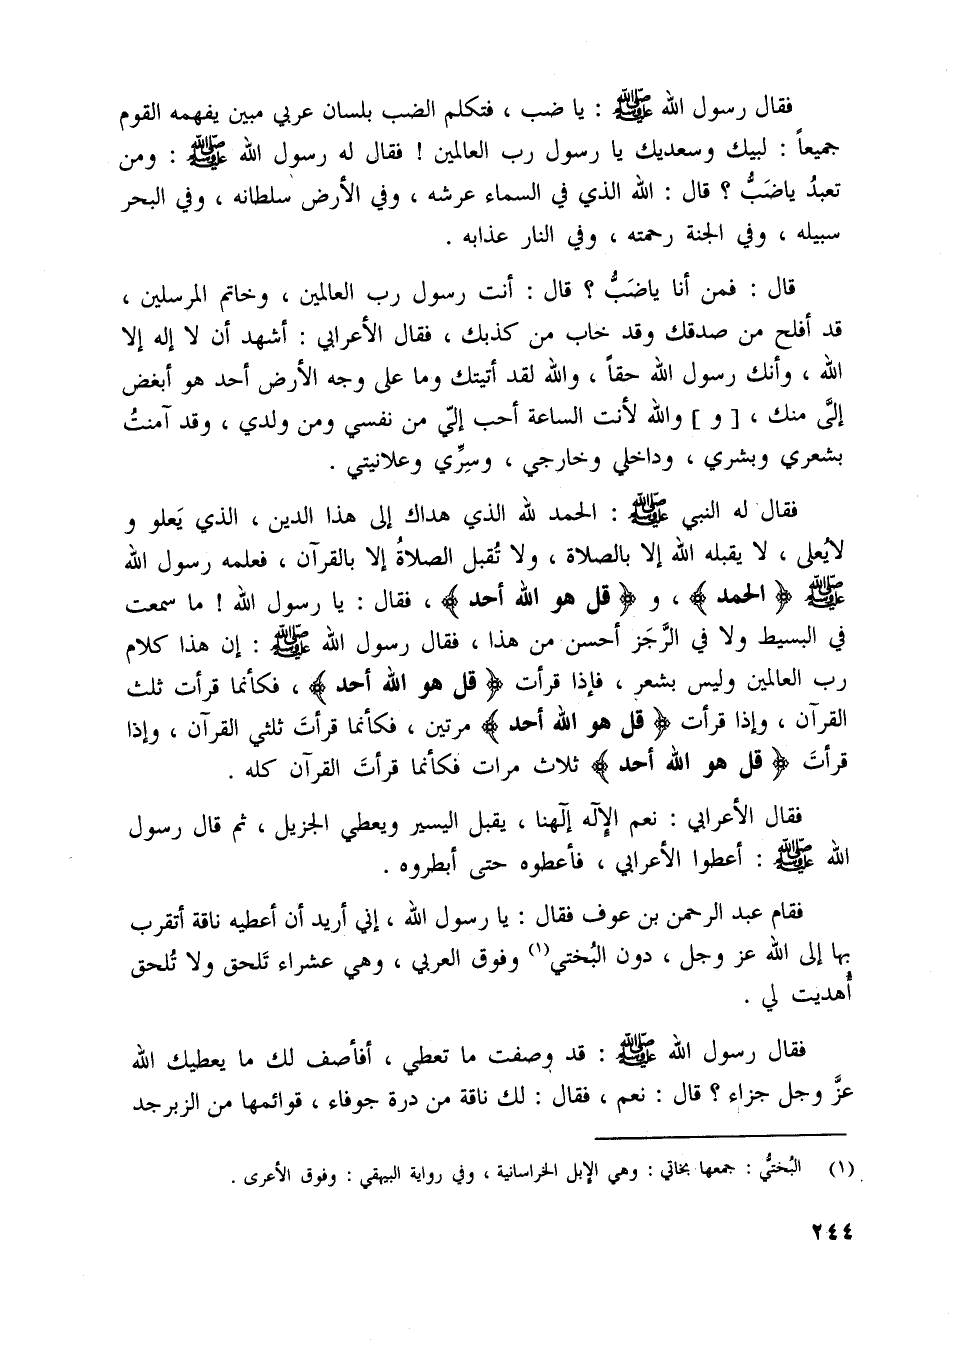 فقال رسول الله ﷺ : يا ضب ، فتكلم الضب بلسان عربي مبين يفهمه القوم
جميعاً : لبيك وسعديك يا رسول رب العالمين ! فقال له رسول الله ﷺ : ومن
تعبدُ ياضَبُّ ؟ قال : الله الذي في السماء عرشه ، وفي الأرض سلطانه ، وفي البحر
سبيله ، وفي الجنة رحمته ، وفي النار عذابه .
قال : فمن أنا ياضَبُّ ؟ قال : أنت رسول رب العالمين ، وخاتم المرسلين ،
قد أفلح من صدقك وقد خاب من كذبك ، فقال الأعرابي : أشهد أن لا إله إلا
الله ، وأنك رسول الله حقاً ، والله لقد أتيتك وما على وجه الأرض أحد هو أبغض
إليَّ منك ، [ و ] والله لأنت الساعة أحب إليّ من نفسي ومن ولدي ، وقد آمنتُ
بشعري وبشري ، وداخلي وخارجي ، وسِرِّي وعلانيتي .
فقال له النبي ﷺ : الحمد لله الذي هداك إلى هذا الدين ، الذي يَعلو و
لايُعلى ، لا يقبله الله إلا بالصلاة ، ولا تُقبل الصلاةُ إلا بالقرآن ، فعلمه رسول الله
ﷺ ﴿ الحمد ﴾ ، و ﴿ قل هو الله أحد ﴾ ، فقال : يا رسول الله ! ما سمعت
في البسيط ولا في الرَّجَز أحسن من هذا ، فقال رسول الله ﷺ : إن هذا كلام
رب العالمين وليس بشعر ، فإذا قرأت ﴿ قل هو الله أحد ﴾ ، فكأنما قرأت ثلث
القرآن ، وإذا قرأت ﴿ قل هو الله أحد ﴾ مرتين ، فكأنما قرأتَ ثلثي القرآن ، وإذا
قرأتَ ﴿ قل هو الله أحد ﴾ ثلاث مرات فكأنما قرأتَ القرآن كله .
فقال الأعرابي : نعم الإلٰه إلٰهنا ، يقبل اليسير ويعطي الجزيل ، ثم قال رسول
الله ﷺ : أعطوا الأعرابي ، فأعطوه حتى أبطروه .
فقام عبد الرحمن بن عوف فقال : يا رسول الله ، إني أريد أن أعطيه ناقة أتقرب
بها إلى الله عز وجل ، دون البُختي(١) وفوق العربي ، وهي عشراء تَلحق ولا تُلحق
أُهديت لي .
فقال رسول الله ﷺ : قد وصفت ما تعطي ، أفأصف لك ما يعطيك الله
عزَّ وجل جزاء ؟ قال : نعم ، فقال : لك ناقة من درة جوفاء ، قوائمها من الزبرجد
(١) البُختيُّ : جمعها بخاتي : وهي الإبل الخراسانية ، وفي رواية البيهقي : وفوق الأعرى .
٢٤٤